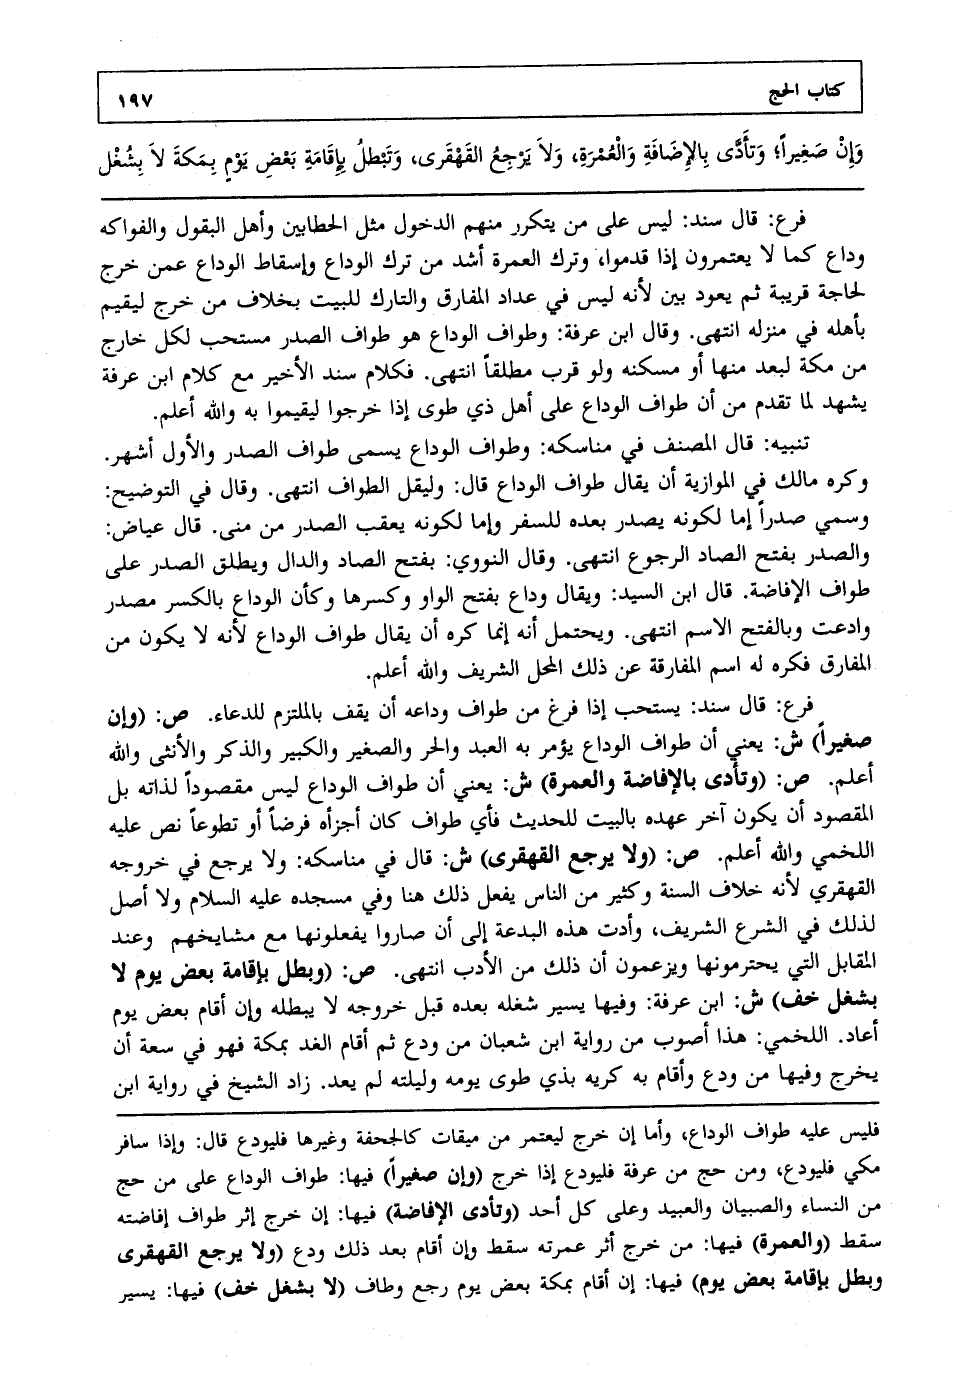 كتاب الحج
١٩٧
وَإِنْ صَغِيراً؛ وَتَأَدَّى بِالإِضَافَةِ وَالْعُمْرَةِ، وَلاَ يَرْجِعُ القَهْقَرى، وَتَبْطلُ بِإِقَامَةِ بَعْضِ يَوْمٍ بِمَكةَ لاَ بِشُغْل
فرع: قال سند: ليس على من يتكرر منهم الدخول مثل الحطابين وأهل البقول والفواكه
وداع كما لا يعتمرون إذا قدموا، وترك العمرة أشد من ترك الوداع وإسقاط الوداع عمن خرج
لحاجة قريبة ثم يعود بين لأنه ليس في عداد المفارق والتارك للبيت بخلاف من خرج ليقيم
بأهله في منزله انتهى. وقال ابن عرفة: وطواف الوداع هو طواف الصدر مستحب لكل خارج
من مكة لبعد منها أو مسكنه ولو قرب مطلقاً انتهى. فكلام سند الأخير مع كلام ابن عرفة
يشهد لما تقدم من أن طواف الوداع على أهل ذي طوى إذا خرجوا ليقيموا به والله أعلم.
تنبيه: قال المصنف في مناسكه: وطواف الوداع يسمى طواف الصدر والأول أشهر.
وكره مالك في الموازية أن يقال طواف الوداع قال: وليقل الطواف انتهى. وقال في التوضيح:
وسمي صدراً إما لكونه يصدر بعده للسفر وإما لكونه يعقب الصدر من منى. قال عياض:
والصدر بفتح الصاد الرجوع انتهى. وقال النووي: بفتح الصاد والدال ويطلق الصدر على
طواف الإفاضة. قال ابن السيد: ويقال وداع بفتح الواو وكسرها وكأن الوداع بالكسر مصدر
وادعت وبالفتح الاسم انتهى. ويحتمل أنه إنما كره أن يقال طواف الوداع لأنه لا يكون من
المفارق فكره له اسم المفارقة عن ذلك المحل الشريف والله أعلم.
فرع: قال سند: يستحب إذا فرغ من طواف وداعه أن يقف بالملتزم للدعاء. ص: (وإن
صغيراً) ش: يعني أن طواف الوداع يؤمر به العبد والحر والصغير والكبير والذكر والأنثى والله
أعلم. ص: (وتأدى بالإفاضة والعمرة) ش: يعني أن طواف الوداع ليس مقصوداً لذاته بل
المقصود أن يكون آخر عهده بالبيت للحديث فأي طواف كان أجزأه فرضاً أو تطوعاً نص عليه
اللخمي والله أعلم. ص: (ولا يرجع القهقرى) ش: قال في مناسكه: ولا يرجع في خروجه
القهقري لأنه خلاف السنة وكثير من الناس يفعل ذلك هنا وفي مسجده عليه السلام ولا أصل
لذلك في الشرع الشريف، وأدت هذه البدعة إلى أن صاروا يفعلونها مع مشايخهم وعند
المقابل التي يحترمونها ويزعمون أن ذلك من الأدب انتهى. ص: (وبطل بإقامة بعض يوم لا
بشغل خف) ش: ابن عرفة: وفيها يسير شغله بعده قبل خروجه لا يبطله وإن أقام بعض يوم
أعاد. اللخمي: هذا أصوب من رواية ابن شعبان من ودع ثم أقام الغد بمكة فهو في سعة أن
يخرج وفيها من ودع وأقام به كريه بذي طوى يومه وليلته لم يعد. زاد الشيخ في رواية ابن
فليس عليه طواف الوداع، وأما إن خرج ليعتمر من ميقات كالجحفة وغيرها فليودع قال: وإذا سافر
مكي فليودع، ومن حج من عرفة فليودع إذا خرج (وإن صغيراً) فيها: طواف الوداع على من حج
من النساء والصبيان والعبيد وعلى كل أحد (وتأدى الإفاضة) فيها: إن خرج إثر طواف إفاضته
سقط (والعمرة) فيها: من خرج أثر عمرته سقط وإن أقام بعد ذلك ودع (ولا يرجع القهقرى
وبطل بإقامة بعض يوم) فيها: إن أقام بمكة بعض يوم رجع وطاف (لا بشغل خف) فيها: يسير